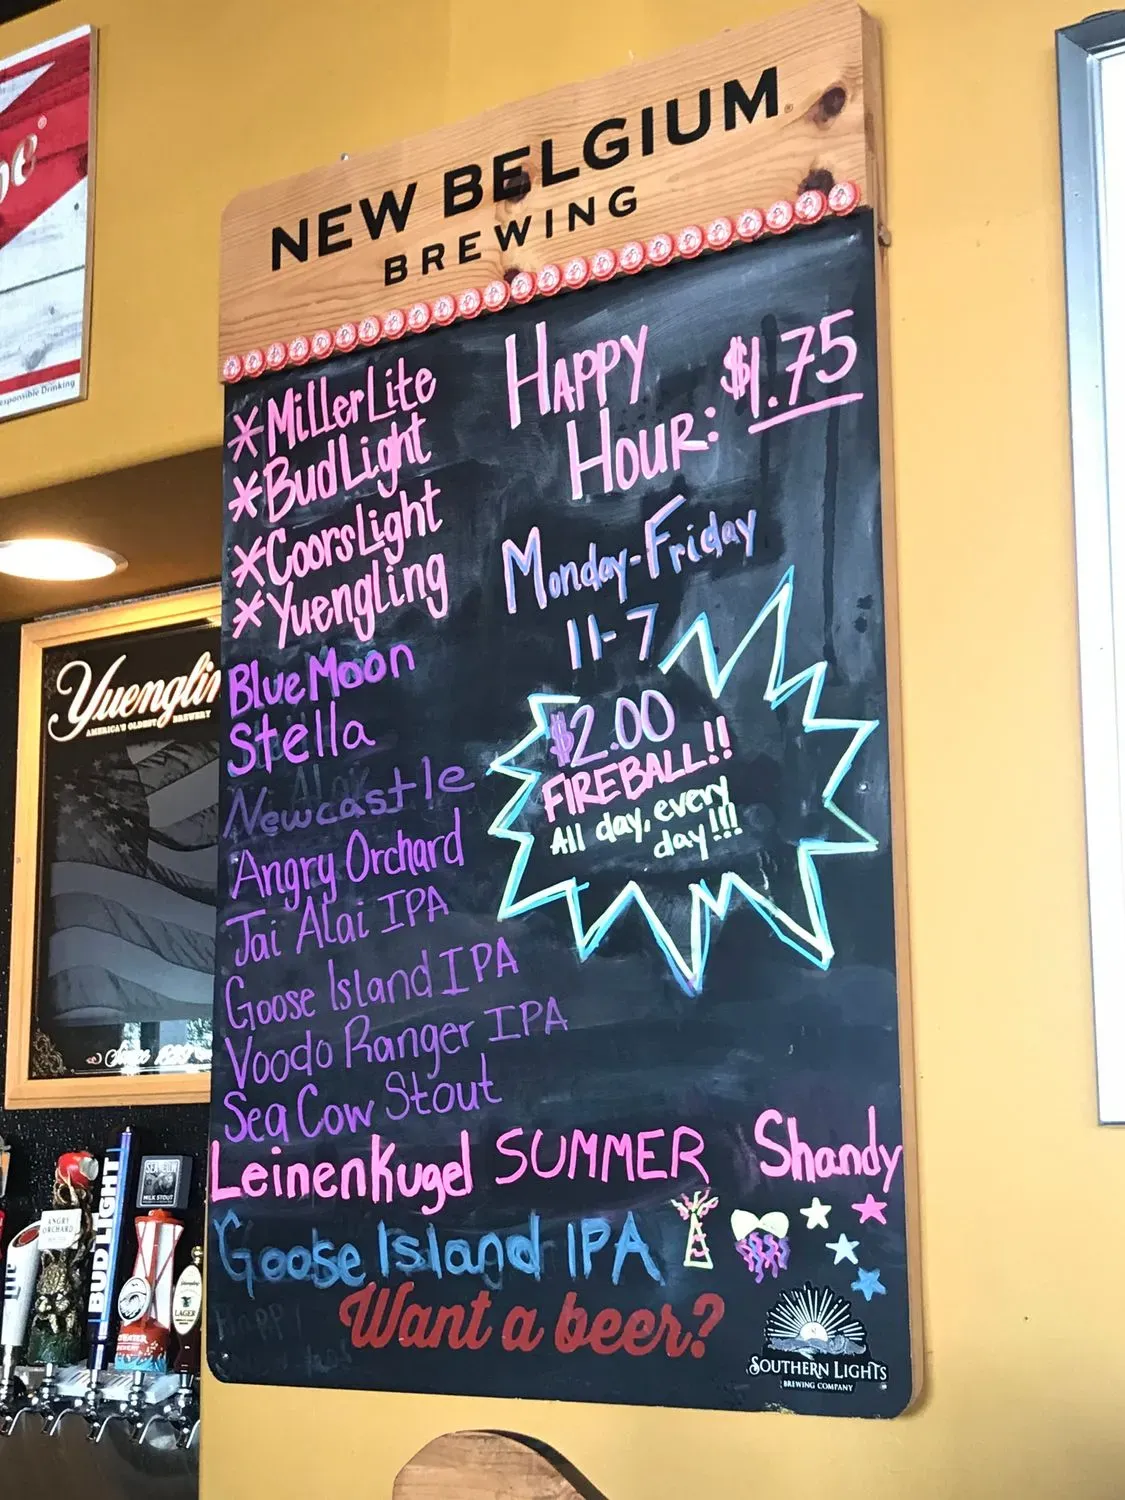 NEW BELGIUM
BREWING
*MillerLite
*BudLight
*CoorsLight
*Yuengling
BlueMoon
Stella
Newcastle
Angry Orchard
Jai Alai IPA
Goose Island IPA
Voodo Ranger IPA
Sea Cow Stout
LeinenKugel SUMMER Shandy
Goose Island IPA
Want a beer?
HAPPY
HOUR: $1.75
Monday-Friday
11-7
$2.00
FIREBALL!!
All day, every
day!!!
SOUTHERN LIGHTS
BREWING COMPANY
esponsible Drinking
Yuenglin
AMERICA'S OLDEST BREWERY
Since 1829
ANGRY
ORCHARD
BUD LIGHT
SEA COW
MILK STOUT
LAGER